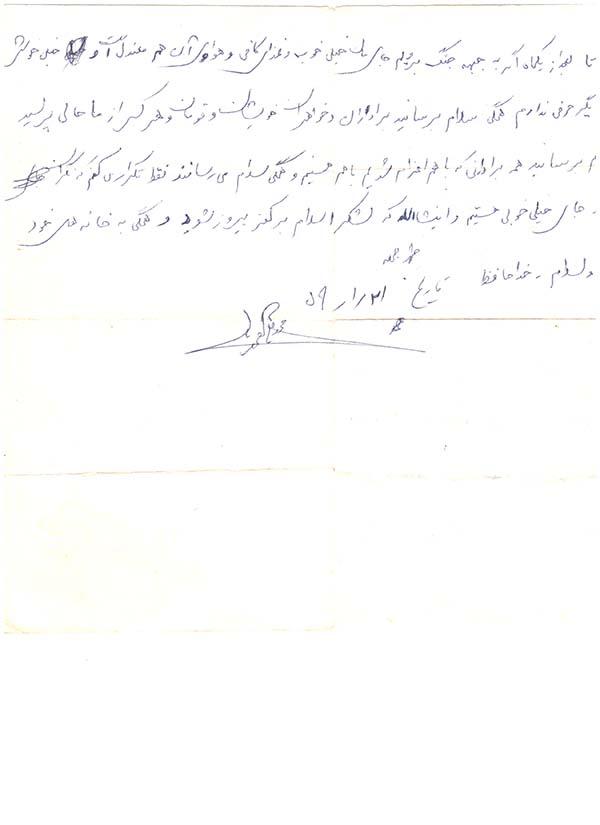 تا بعد از یکماه اگر به جبهه جنگ برویم جای مان خیلی خوب و غذای کافی و هوای آن هم معتدل است و خیلی خوش
یگر حرفی ندارم همگی سلام برسانید برادران و خواهران خویشان و قومان و هر کس از ما حالی پرسید
م برسانید همه برادرانی که با هم اعزام شدیم با هم هستیم و همگی سلام می رسانند فقط تکراری کنم که نگران
جای خیلی خوبی هستیم و انشاالله که لشکر اسلام بر کفر پیروز بشود و همگی به خانه های خود
والسلام - خداحافظ تاریخ ۵۹